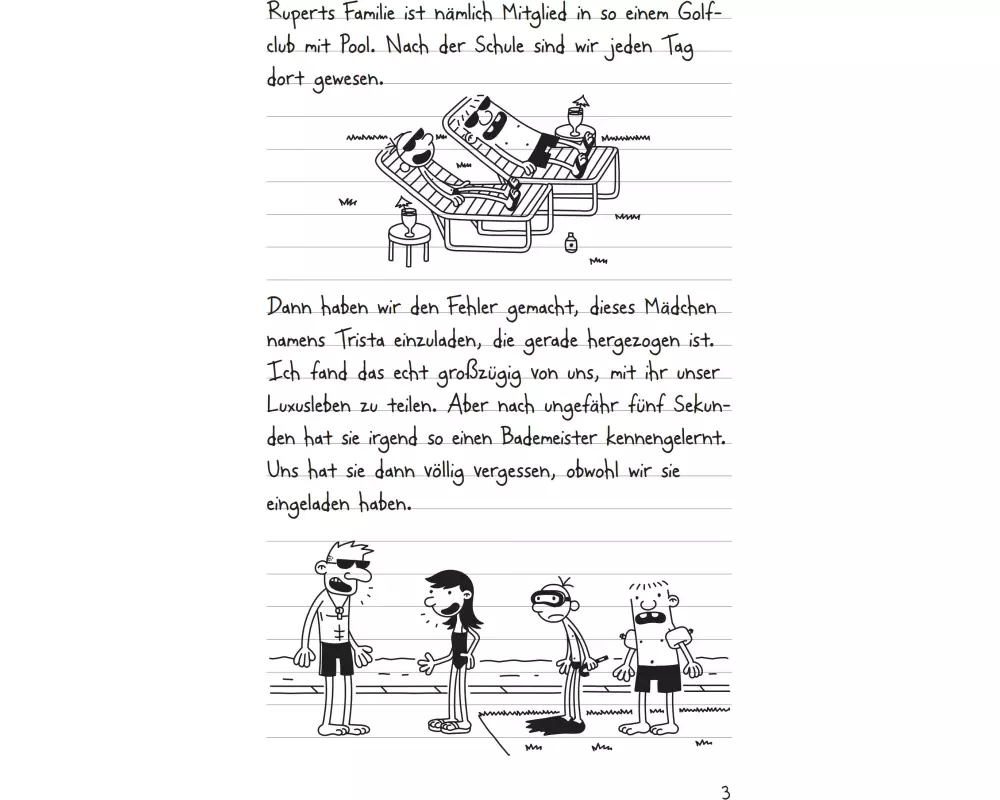 Ruperts Familie ist nämlich Mitglied in so einem Golf-
club mit Pool. Nach der Schule sind wir jeden Tag
dort gewesen.
Dann haben wir den Fehler gemacht, dieses Mädchen
namens Trista einzuladen, die gerade hergezogen ist.
Ich fand das echt großzügig von uns, mit ihr unser
Luxusleben zu teilen. Aber nach ungefähr fünf Sekun-
den hat sie irgend so einen Bademeister kennengelernt.
Uns hat sie dann völlig vergessen, obwohl wir sie
eingeladen haben.
3